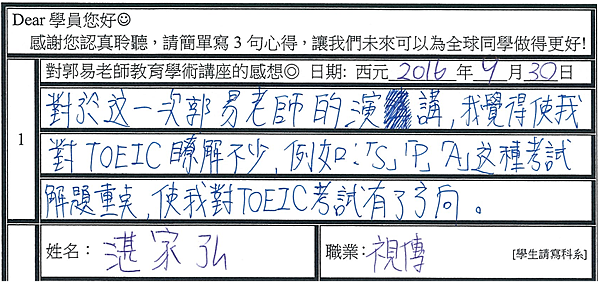 Dear 學員您好☺
感謝您認真聆聽，請簡單寫 3 句心得，讓我們未來可以為全球同學做得更好!
對郭易老師教育學術講座的感想◎ 日期: 西元 2016 年 9 月 30 日
1
對於这一次郭易老師的演講，我覺得使我
對TOEIC瞭解不少，例如：「S」「P」「A」这種考試
解題重点，使我對TOEIC考試有了方向。
姓名： 湛家弘 職業： 視傳 [學生請寫科系]